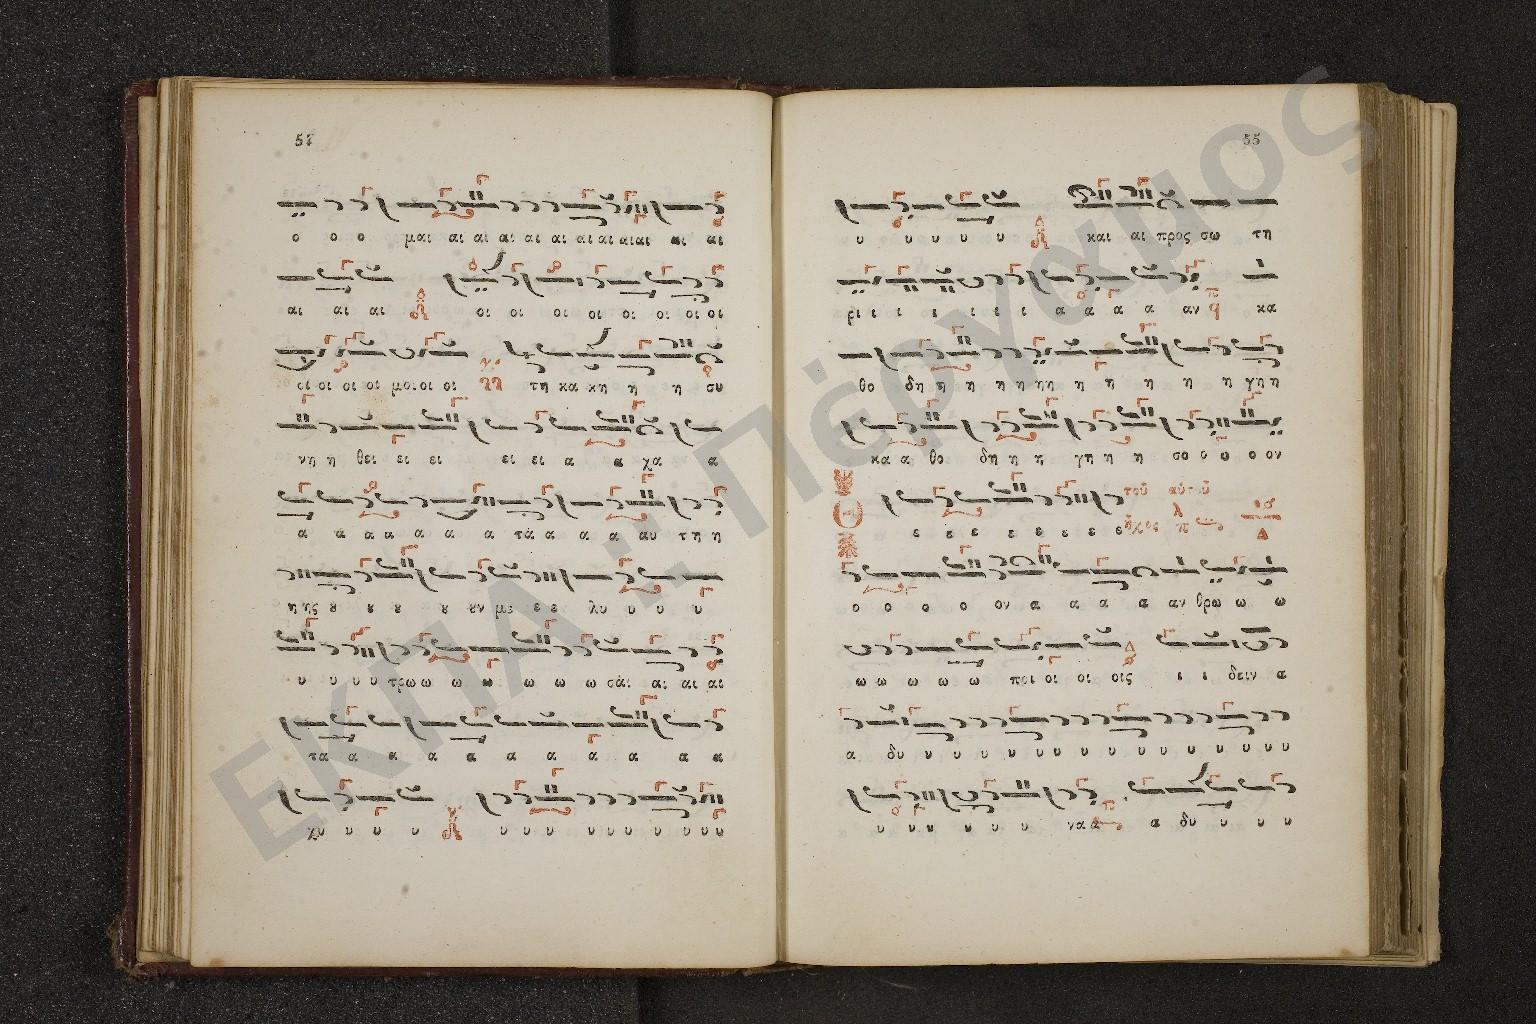 57
ο ο ο μαι αι αι αι αι αι αι αι αιαι αι αι
αι αι αι οι οι οι οι οι οι οι οι
οι οι οι οι μοι οι οι τη κα κη η η συ
νη η θει ει ει ει ει α α χα α
α α α α α α α τά α α α αυ τη η
η ης ȣ ȣ ȣ ȣ ȣν με ε ε λυ υ υ υ υ
υ υ υ υ τρω ω ω ω ω ω ω σάι αι αι αι
τα α α α α α α α α α α
χυ υ υ υ υ υ υ υ υ υ υ υ υ υ
55
υ υ υ υ υ και αι προς σω τη
ρι ι ι ι ε ι α α α α αν κα
θο δη η η η η ηη η η η η η γη η
κα α θο δη η η γη η η σο ο ο ο ον
τοῦ αὐτοῦ
ε ε ε ε ε ε ε ἦχος
ο ο ο ο ον α α α α αν θρω ω ω
ω ω ω ω ω ποι οι οι οις ι ι δειν α
α δυ υ υ υ υ υ υ υ υ υ υ υ υ υ υ
υ υ υ υ υ υ να α α δυ υ υ υ
ΕΚΠΑ :: Πέργαμος